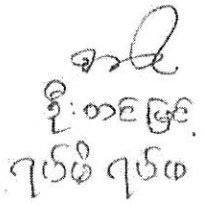 ဦးတင်မြင့်
ရပ်မိ ရပ်ဖ